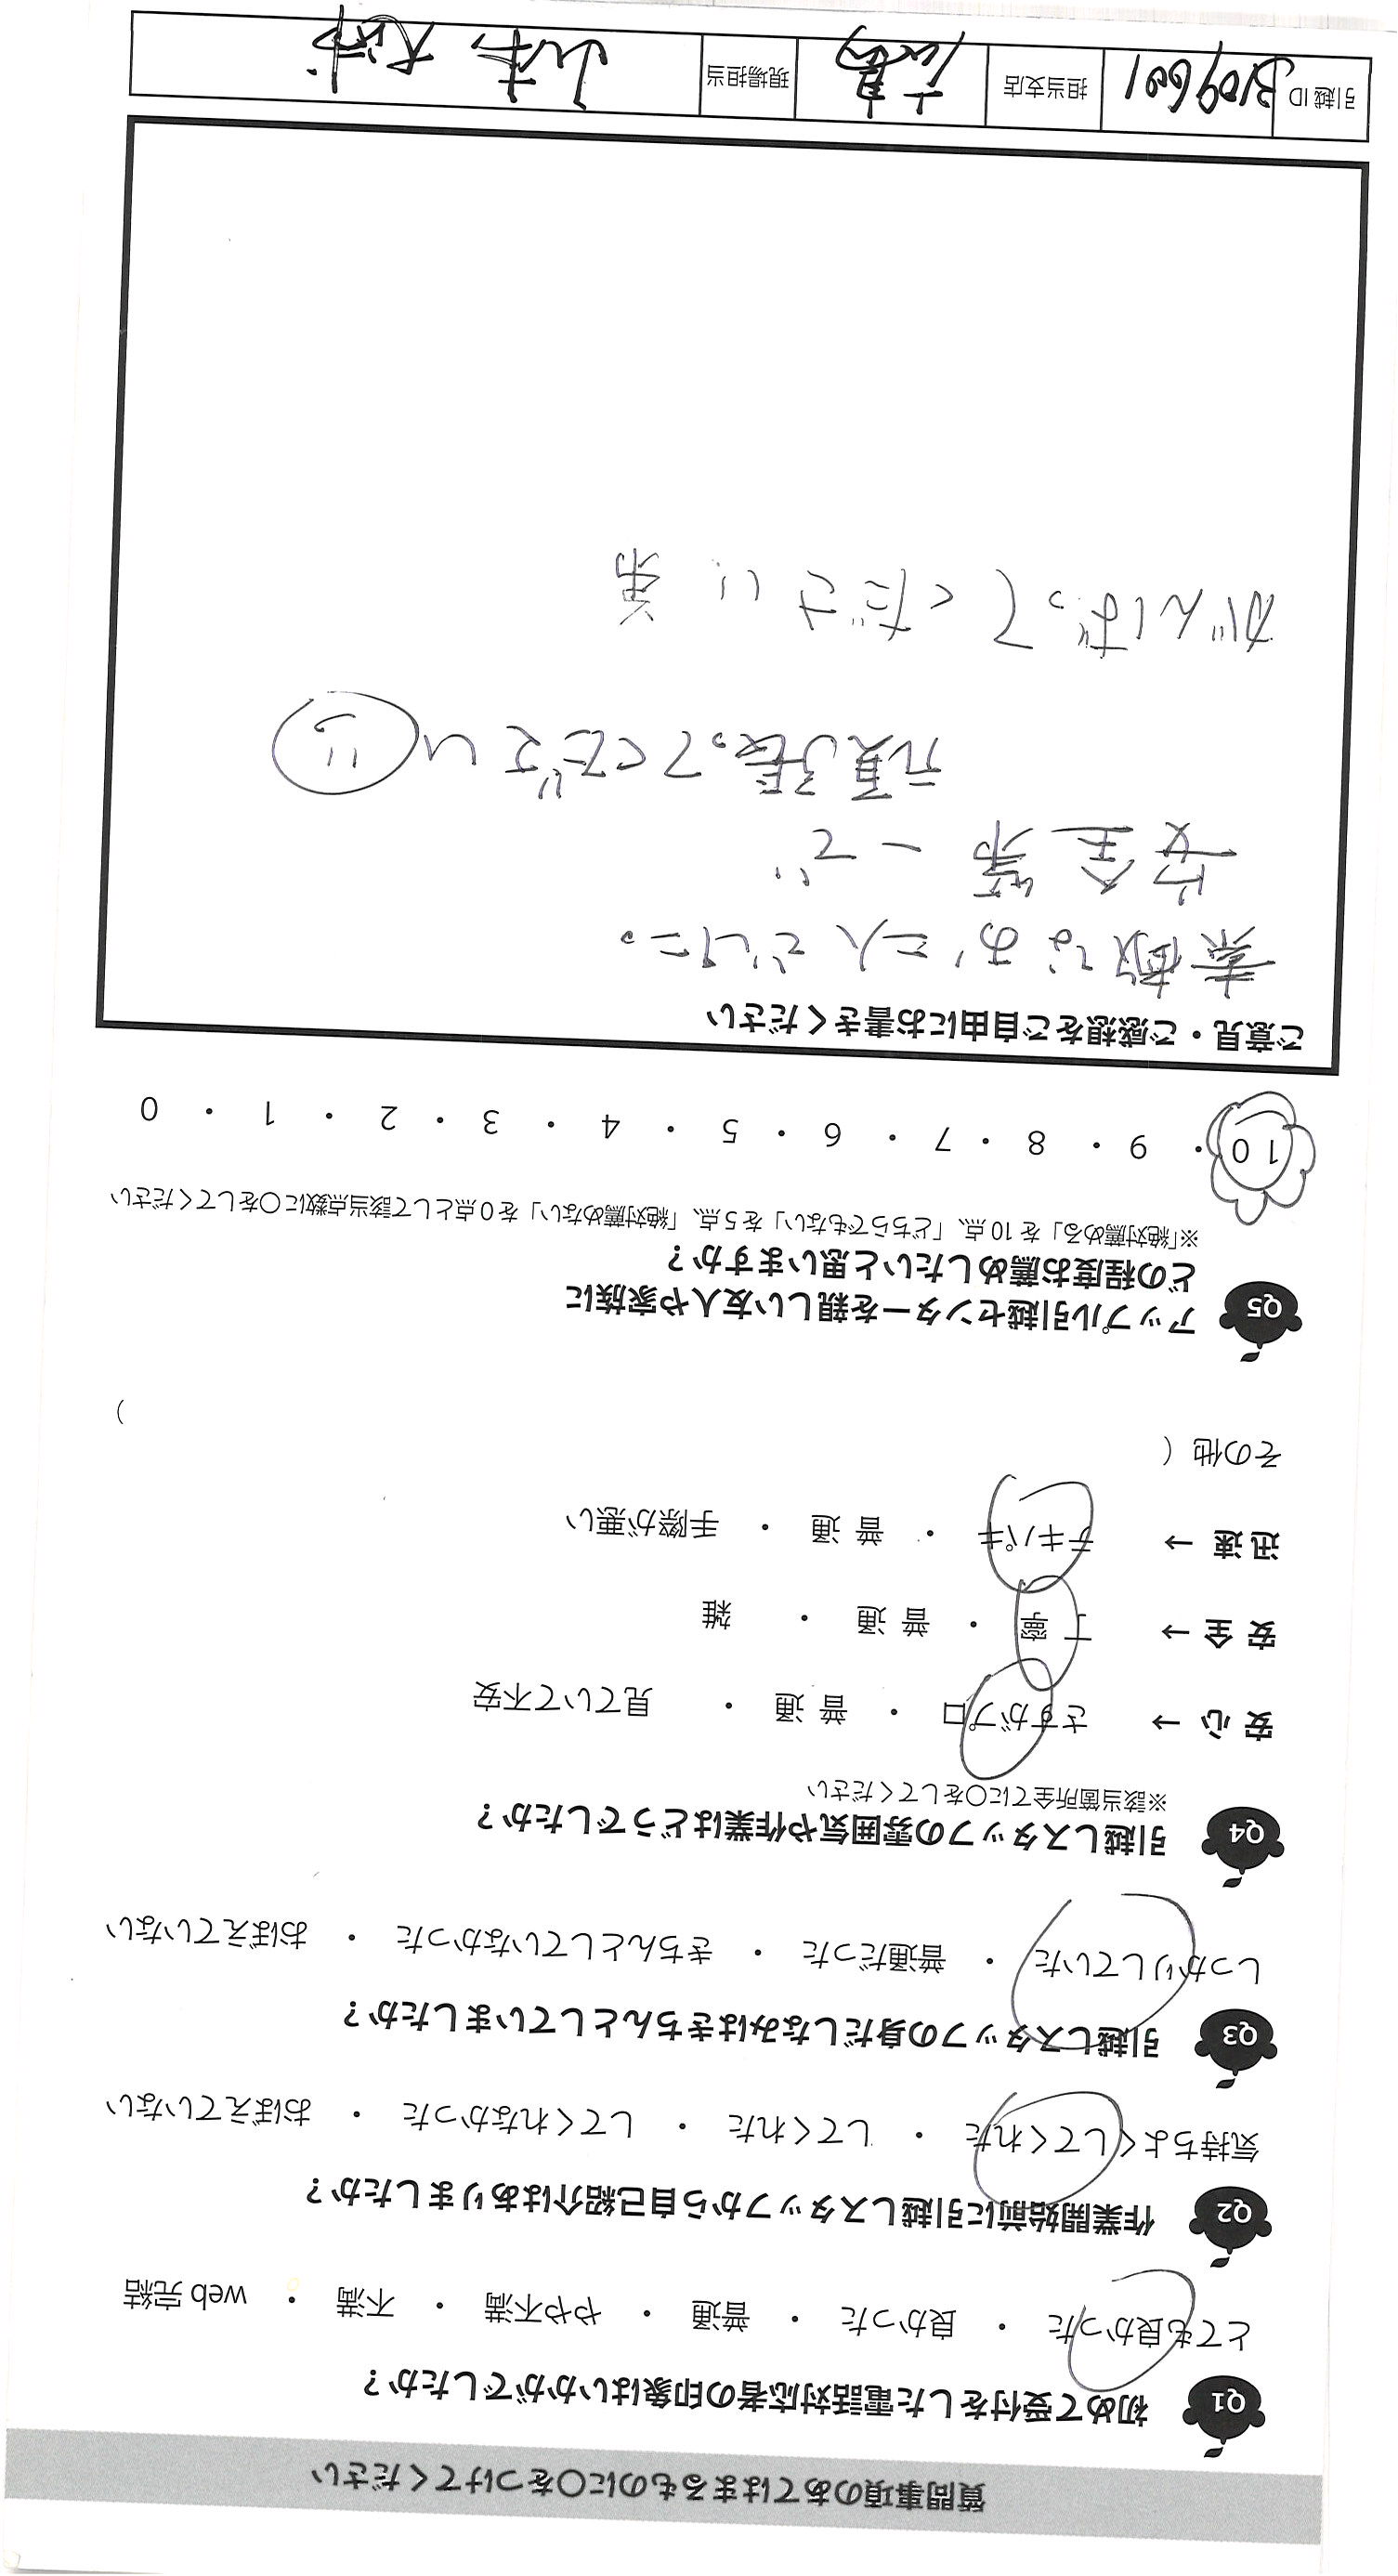 質問事項のあてはまるものに○をつけてください
Q1 初めて受付をした電話対応者の印象はいかがでしたか？
とても良かった ・ 良かった ・ 普通 ・ やや不満 ・ 不満 ・ web 完結
Q2 作業開始前に引越しスタッフから自己紹介はありましたか？
気持ちよくしてくれた ・ してくれた ・ してくれなかった ・ おぼえていない
Q3 引越しスタッフの身だしなみはきちんとしていましたか？
しっかりしていた ・ 普通だった ・ きちんとしていなかった ・ おぼえていない
Q4 引越しスタッフの雰囲気や作業はどうでしたか？
※該当箇所全てに○をしてください
安 心 → さすがプロ ・ 普 通 ・ 見ていて不安
安 全 → 丁 寧 ・ 普 通 ・ 雑
迅 速 → テキパキ ・ 普 通 ・ 手際が悪い
その他 (
)
Q5 アップル引越センターを親しい友人や家族に
どの程度お薦めしたいと思いますか？
※「絶対薦める」を 10 点、「どちらでもない」を 5 点、「絶対薦めない」を 0 点として該当点数に○をしてください
10 ・ 9 ・ 8 ・ 7 ・ 6 ・ 5 ・ 4 ・ 3 ・ 2 ・ 1 ・ 0
ご意見・ご感想をご自由にお書きください
素敵なお二人でした。
安全第一で
頑張ってください
がんばってください 弟
引越 ID 3109601 担当支店 現場担当